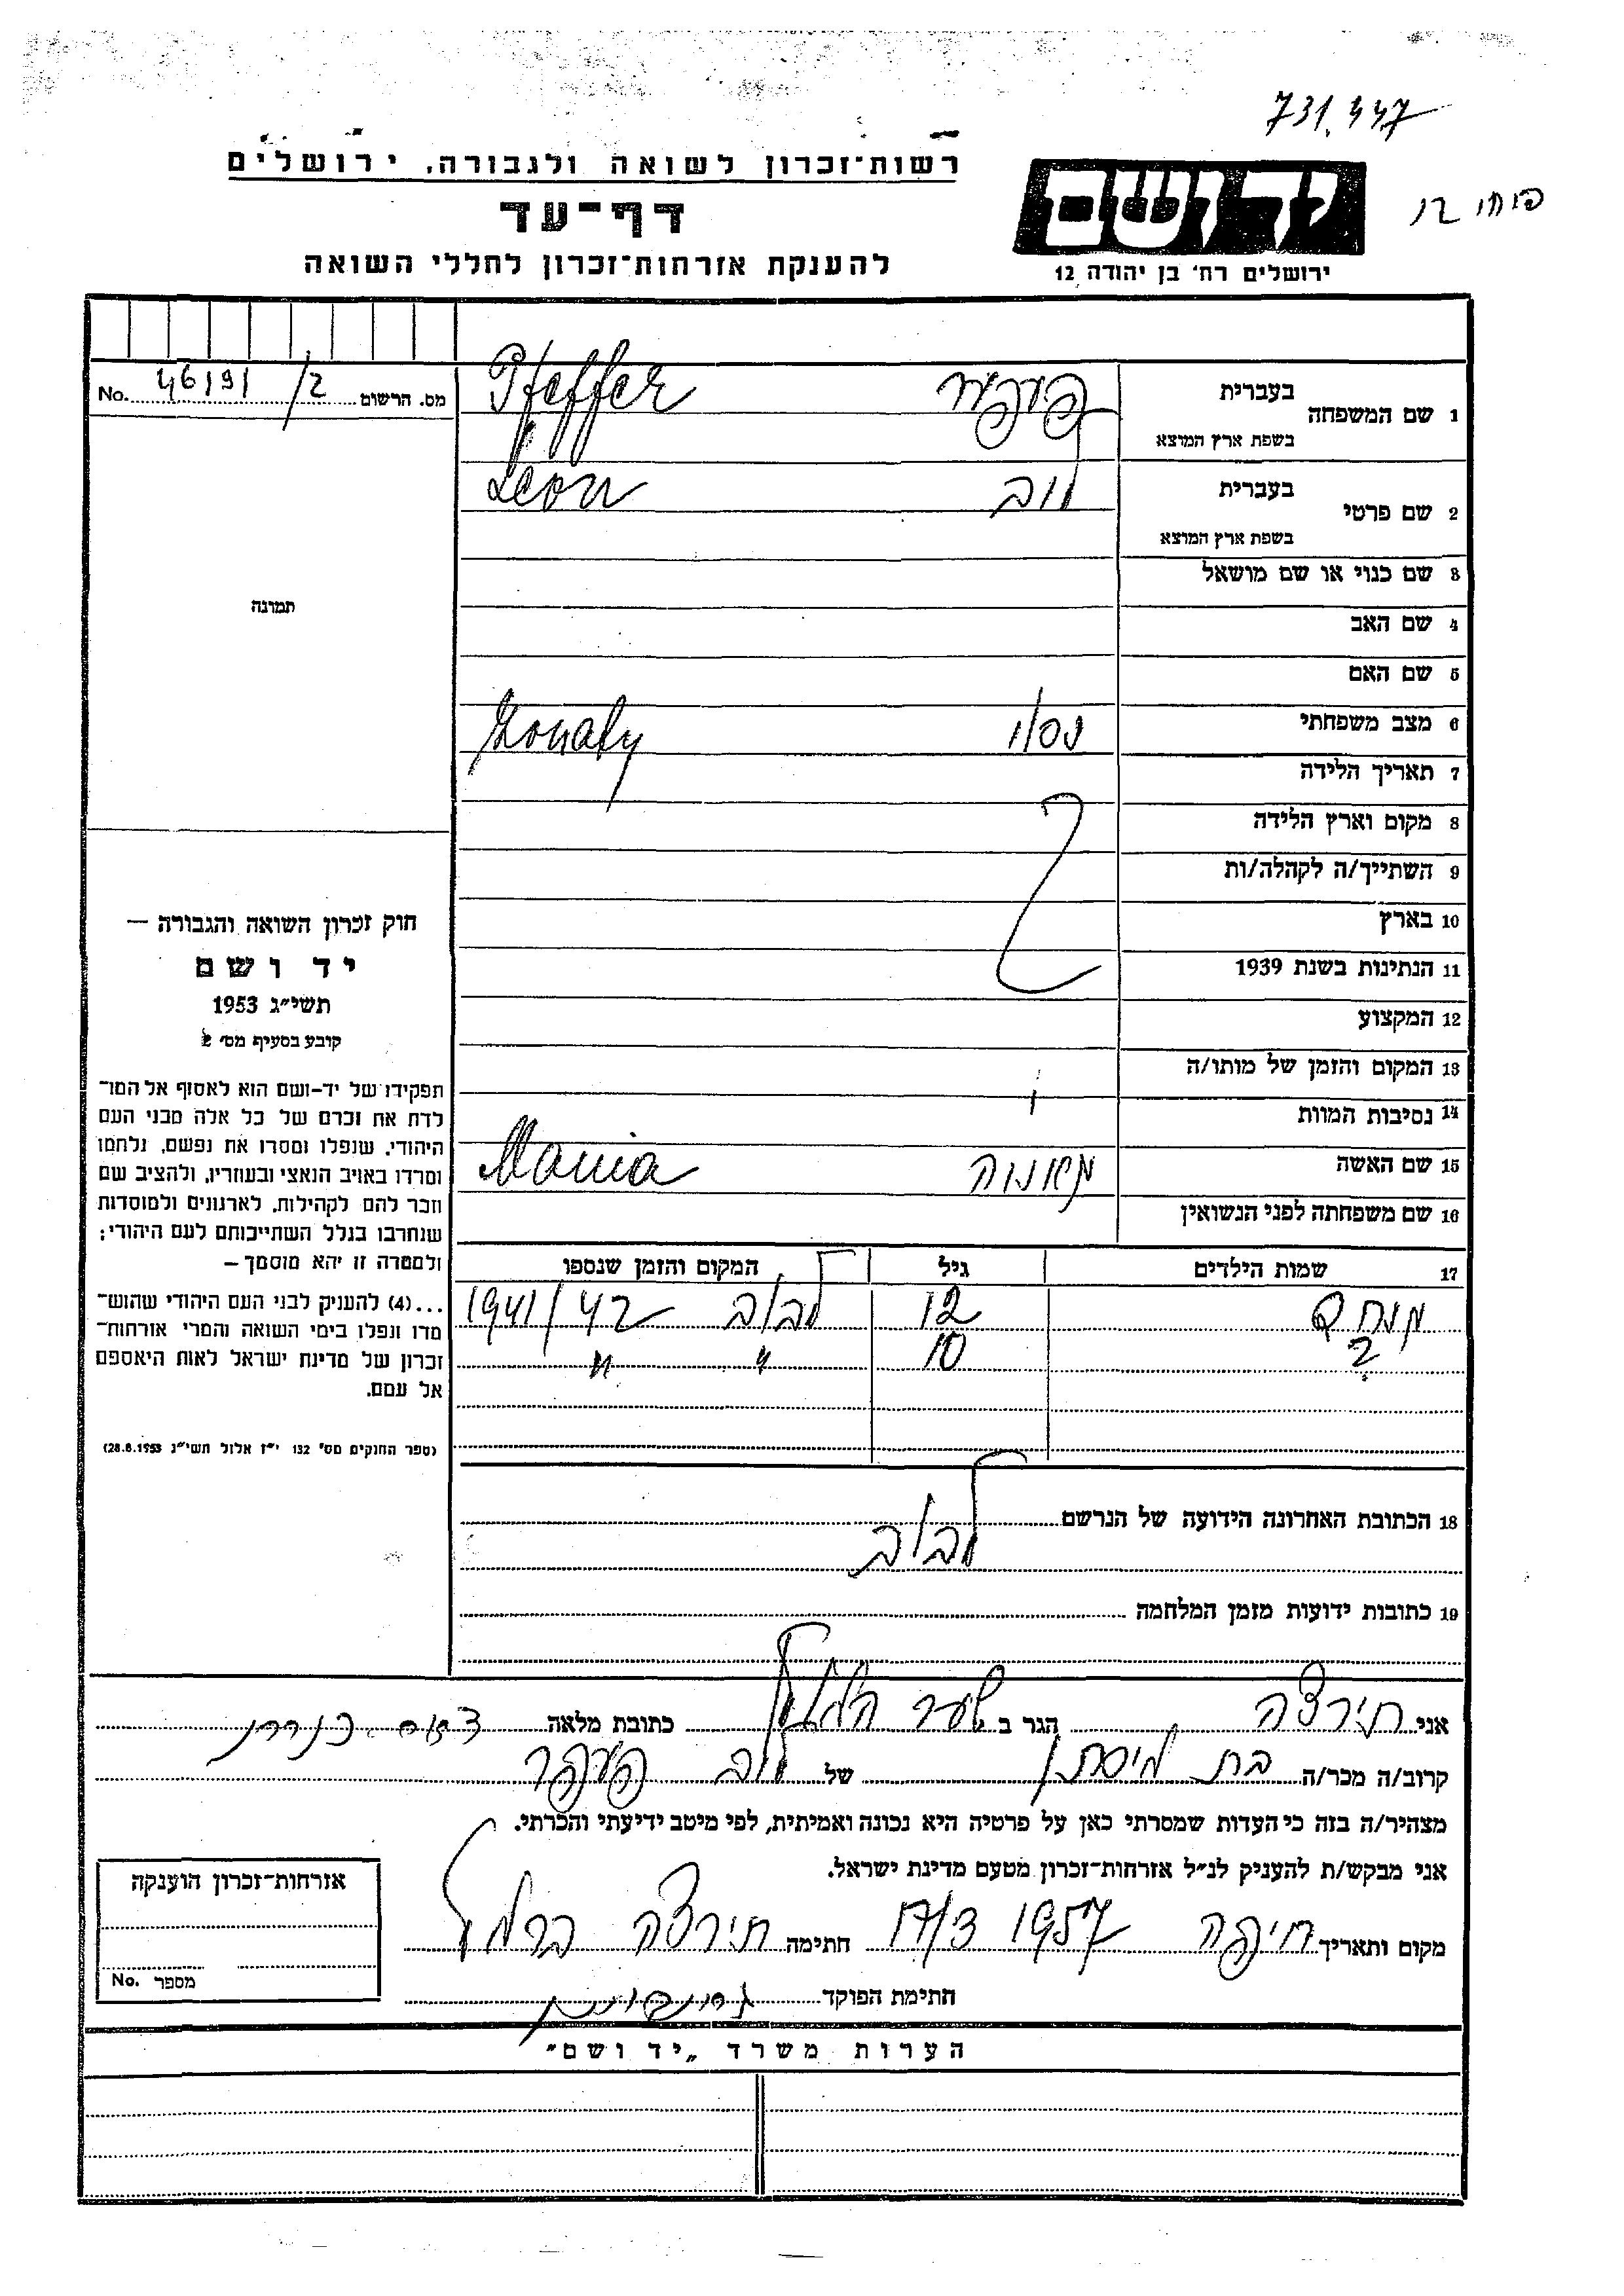 731.447
רשות־זכרון לשואה ולגבורה, ירושלים
דף־עד
להענקת אזרחות־זכרון לחללי השואה
יד ושם
ירושלים רח' בן יהודה 12
מס. הרשום 46191/2 No.
1 שם המשפחה בעברית פעפער Pfeffer
בשפת ארץ המוצא
2 שם פרטי בעברית לוב Leon
בשפת ארץ המוצא
3 שם כנוי או שם מושאל
תמונה
4 שם האב
5 שם האם
6 מצב משפחתי נשוי żonaty
7 תאריך הלידה
8 מקום וארץ הלידה
9 השתייך/ה לקהלה/ות
10 בארץ
11 הנתינות בשנת 1939
12 המקצוע
13 המקום והזמן של מותו/ה
14 נסיבות המוות
15 שם האשה מאניה Mania
16 שם משפחתה לפני הנשואין
17 שמות הילדים גיל המקום והזמן שנספו
מונק 12 לבוב 1941/42
? 10 " "
18 הכתובת האחרונה הידועה של הנרשם
לבוב
19 כתובות ידועות מזמן המלחמה
חוק זכרון השואה והגבורה —
יד ושם
תשי״ג 1953
קובע בסעיף מס' 2
תפקידו של יד-ושם הוא לאסוף אל המו־
לדת את זכרם של כל אלה מבני העם
היהודי, שנפלו ומסרו את נפשם, נלחמו
ומרדו באויב הנאצי ובעוזריו, ולהציב שם
וזכר להם לקהילות, לארגונים ולמוסדות
שנחרבו בגלל השתייכותם לעם היהודי;
ולמטרה זו יהא מוסמך —
...(4) להעניק לבני העם היהודי שהוש־
מדו ונפלו בימי השואה והמרי אזרחות־
זכרון של מדינת ישראל לאות היאספם
אל עמם.
(ספר החוקים מס' 132 י״ז אלול תשי״ג 28.8.1953)
אני תירצה הגר ב שער הגולן כתובת מלאה
קרוב/ה מכר/ה בת של לוב פעפער
מצהיר/ה בזה כי העדות שמסרתי כאן על פרטיה היא נכונה ואמיתית, לפי מיטב ידיעתי והכרתי.
אני מבקש/ת להעניק לנ״ל אזרחות־זכרון מטעם מדינת ישראל.
מקום ותאריך חיפה 1957 חתימה תירצה ברמל
חתימת הפוקד
אזרחות־זכרון הוענקה
מספר No.
הערות משרד „יד ושם״